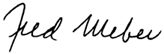 Fred Weber